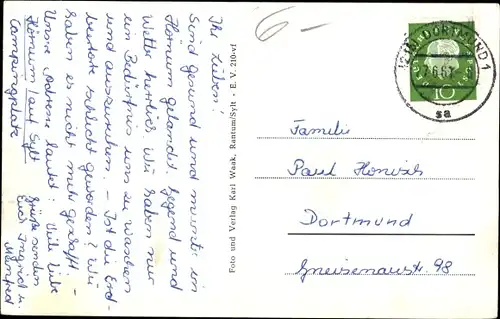 6-
Ihr Lieben!
Sind gesund und munter in
Hörnum gelandet. Gegend und
Wetter herrlich, wir haben nur
ein Bedürfnis uns zu waschen
und auszuruhen. - Ist die Erd-
beertorte schlecht geworden? Wir
haben es nicht mehr geschafft -
Unsre Adresse lautet: Viele liebe
Hörnum/auf Sylt Grüße senden
Campingplatz Euch Ingrid u.
Manfred
Foto und Verlag Karl Waak, Rantum/Sylt - E. V. 210-vf
DORTMUND 1
sa
10
Familie
Paul
Dortmund
Gneisenaustr. 98